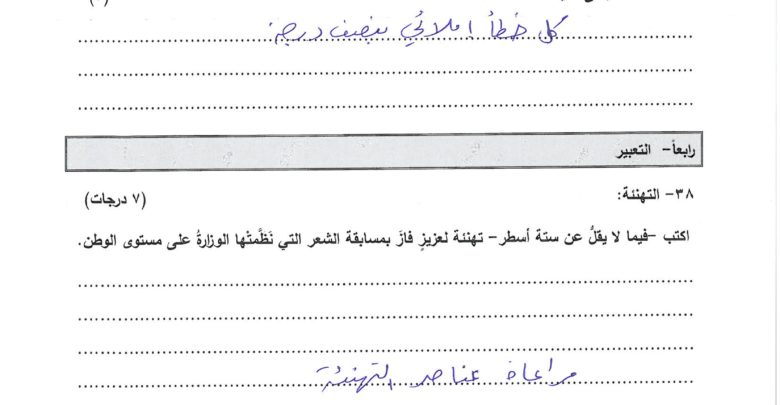 كل خطأ املائي بنصف درجة
رابعاً- التعبير
٣٨- التهنئة: (٧ درجات)
اكتب -فيما لا يقلُّ عن ستة أسطر- تهنئة لعزيزٍ فازَ بمسابقة الشعر التي نَظَّمتْها الوزارةُ على مستوى الوطن.
مراعاة عناصر التهنئة